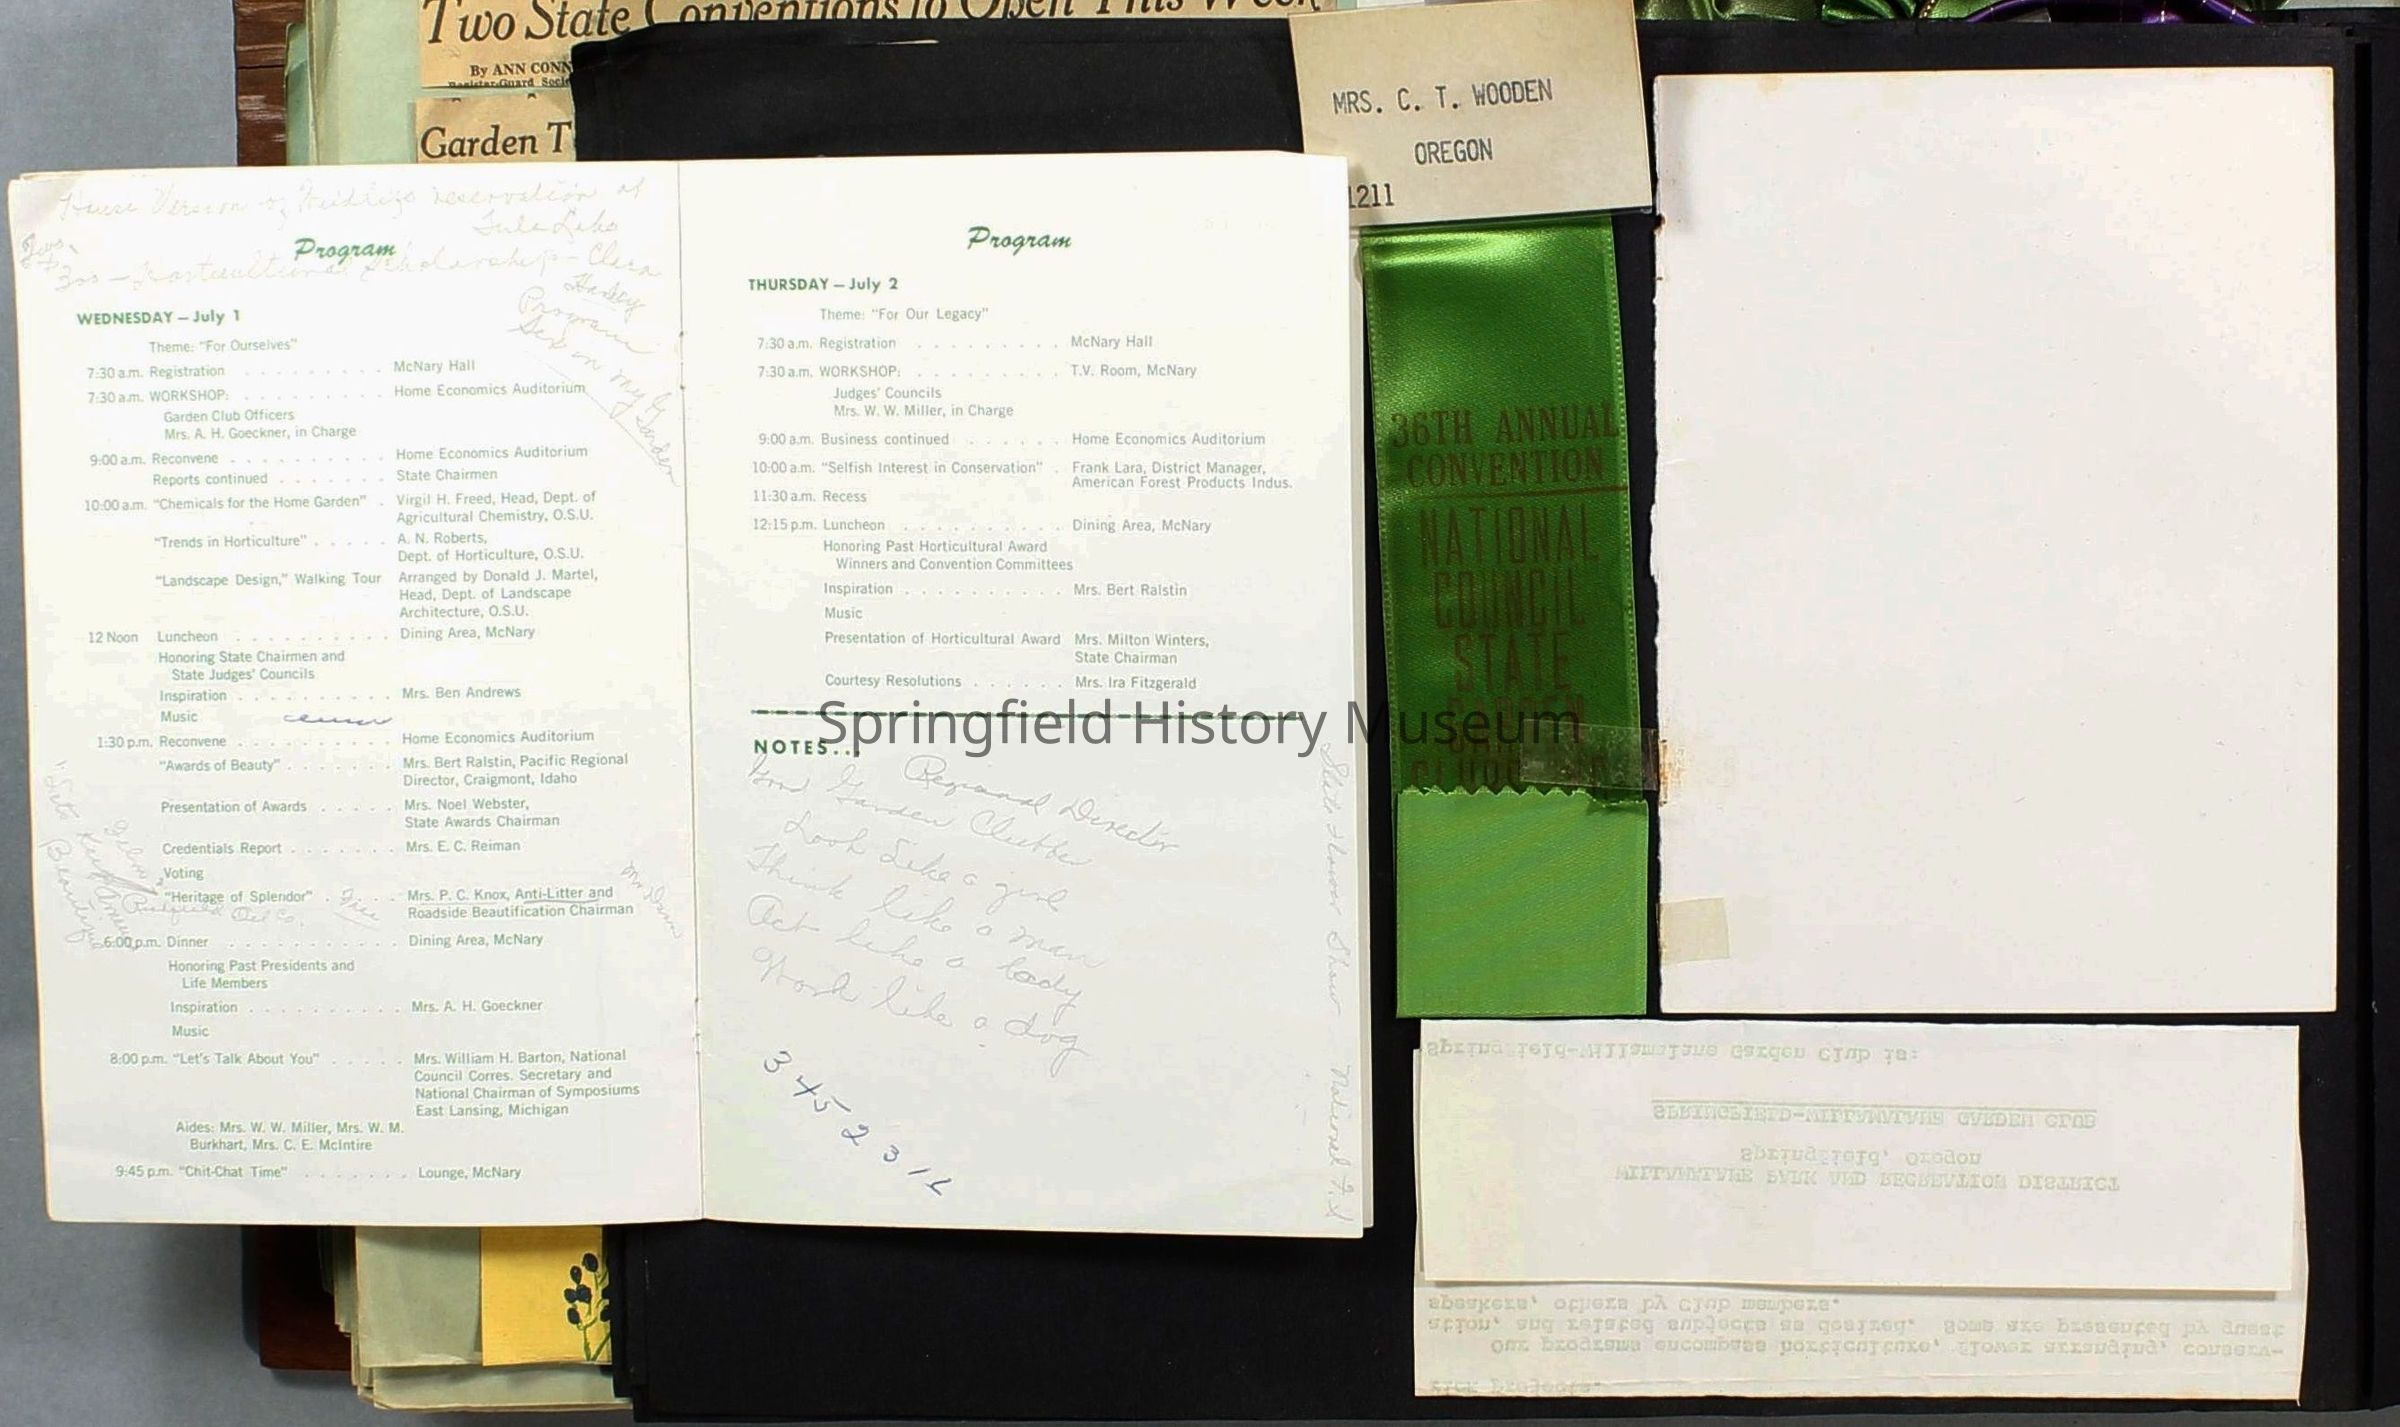 Two State Conventions to Open This Week
By ANN CONN
Register-Guard Soci
Garden T
MRS. C. T. WOODEN
OREGON
1211
House Version of reservation at
Tule Lake
300 — Horticultural Scholarship — Clara
Program
Sex in My Garden
Program
WEDNESDAY — July 1
Theme: "For Ourselves"
7:30 a.m. Registration . . . . . . . . . McNary Hall
7:30 a.m. WORKSHOP: . . . . . . . . . Home Economics Auditorium
Garden Club Officers
Mrs. A. H. Goeckner, in Charge
9:00 a.m. Reconvene . . . . . . . . . . Home Economics Auditorium
Reports continued . . . . . . . State Chairmen
10:00 a.m. "Chemicals for the Home Garden" . Virgil H. Freed, Head, Dept. of
Agricultural Chemistry, O.S.U.
"Trends in Horticulture" . . . . . A. N. Roberts,
Dept. of Horticulture, O.S.U.
"Landscape Design," Walking Tour Arranged by Donald J. Martel,
Head, Dept. of Landscape
Architecture, O.S.U.
12 Noon Luncheon . . . . . . . . . . Dining Area, McNary
Honoring State Chairmen and
State Judges' Councils
Inspiration . . . . . . . . . . Mrs. Ben Andrews
Music
1:30 p.m. Reconvene . . . . . . . . . . Home Economics Auditorium
"Awards of Beauty" . . . . . . . Mrs. Bert Ralstin, Pacific Regional
Director, Craigmont, Idaho
Presentation of Awards . . . . . Mrs. Noel Webster,
State Awards Chairman
Credentials Report . . . . . . . Mrs. E. C. Reiman
Voting
"Heritage of Splendor" . Free . . Mrs. P. C. Knox, Anti-Litter and
Roadside Beautification Chairman
Richfield Oil Co.
6:00 p.m. Dinner . . . . . . . . . . . Dining Area, McNary
Honoring Past Presidents and
Life Members
Inspiration . . . . . . . . . . Mrs. A. H. Goeckner
Music
8:00 p.m. "Let's Talk About You" . . . . . Mrs. William H. Barton, National
Council Corres. Secretary and
National Chairman of Symposiums
East Lansing, Michigan
Aides: Mrs. W. W. Miller, Mrs. W. M.
Burkhart, Mrs. C. E. McIntire
9:45 p.m. "Chit-Chat Time" . . . . . . . Lounge, McNary
Program
THURSDAY — July 2
Theme: "For Our Legacy"
7:30 a.m. Registration . . . . . . . . . McNary Hall
7:30 a.m. WORKSHOP: . . . . . . . . . T.V. Room, McNary
Judges' Councils
Mrs. W. W. Miller, in Charge
9:00 a.m. Business continued . . . . . . Home Economics Auditorium
10:00 a.m. "Selfish Interest in Conservation" . Frank Lara, District Manager,
American Forest Products Indus.
11:30 a.m. Recess
12:15 p.m. Luncheon . . . . . . . . . . Dining Area, McNary
Honoring Past Horticultural Award
Winners and Convention Committees
Inspiration . . . . . . . . . . Mrs. Bert Ralstin
Music
Presentation of Horticultural Award Mrs. Milton Winters,
State Chairman
Courtesy Resolutions . . . . . . Mrs. Ira Fitzgerald
NOTES...
Regional Director
Garden Clubber
Look Like a girl
Think like a man
Act like a lady
Work like a dog
3 4 5 2 3 1
State Flower Show — National
36TH ANNUAL
CONVENTION
NATIONAL
COUNCIL
STATE
GARDEN
CLUBS
Springfield-Willamalane Garden Club is:
SPRINGFIELD-WILLAMALANE GARDEN CLUB
Springfield, Oregon
WILLAMALANE PARK AND RECREATION DISTRICT
speakers, others by Club members.
ation, and related subjects as desired. Some are presented by guest
Our programs encompass horticulture, flower arranging, conserv-
projects.
Springfield History Museum